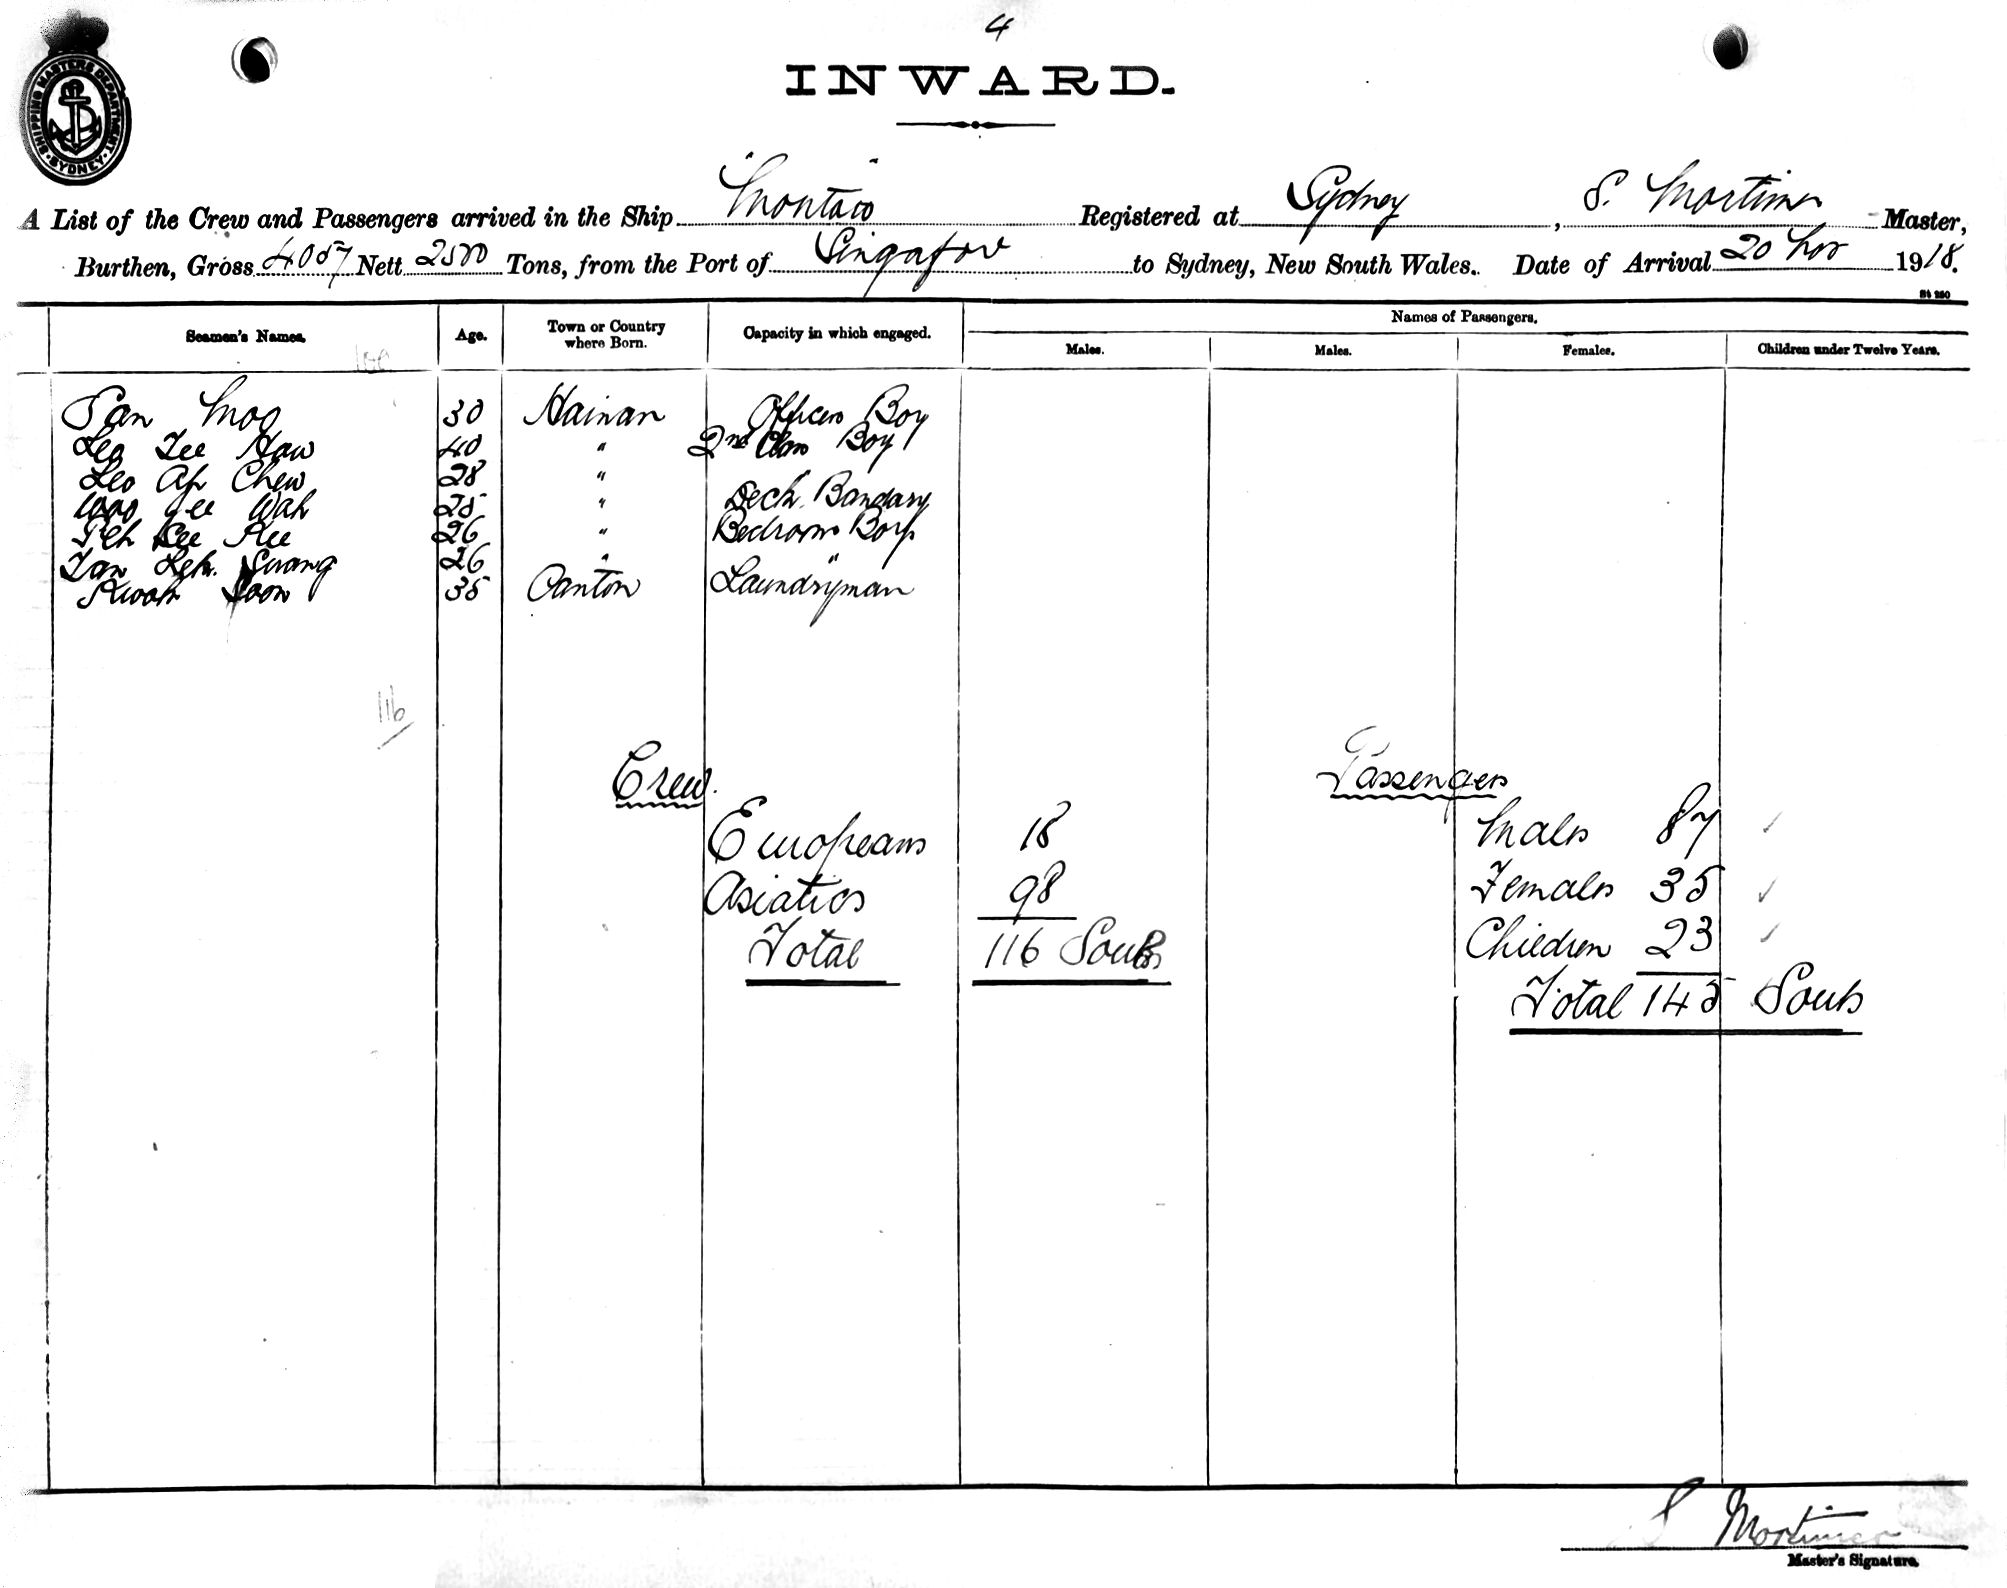 4
SHIPPING MASTERS DEPARTMENT · SYDNEY ·
INWARD.
A List of the Crew and Passengers arrived in the Ship "Montoro" Registered at Sydney, S. Mortimer Master,
Burthen, Gross 4057 Nett 2500 Tons, from the Port of Singapore to Sydney, New South Wales. Date of Arrival 20 Nov 1918.
St 250
Seamen's Names. Age. Town or Country where Born. Capacity in which engaged. Names of Passengers.
Males. Males. Females. Children under Twelve Years.
Pan Moo 30 Hainan Officers Boy
Leo Tee Haw 40 " 2nd Class Boy
Leo Ah Chew 28 "
Woo Yee Wah 25 " Deck Bandary
Peh Kee 26 " Bedroom Boy
Tan Suang 26 " "
Kwok Soon 35 Canton Laundryman
116
Crew. Passengers
Europeans 18 Males 87
Asiatics 98 Females 35
Total 116 Souls Children 23
Total 145 Souls
S Mortimer
Master's Signature.